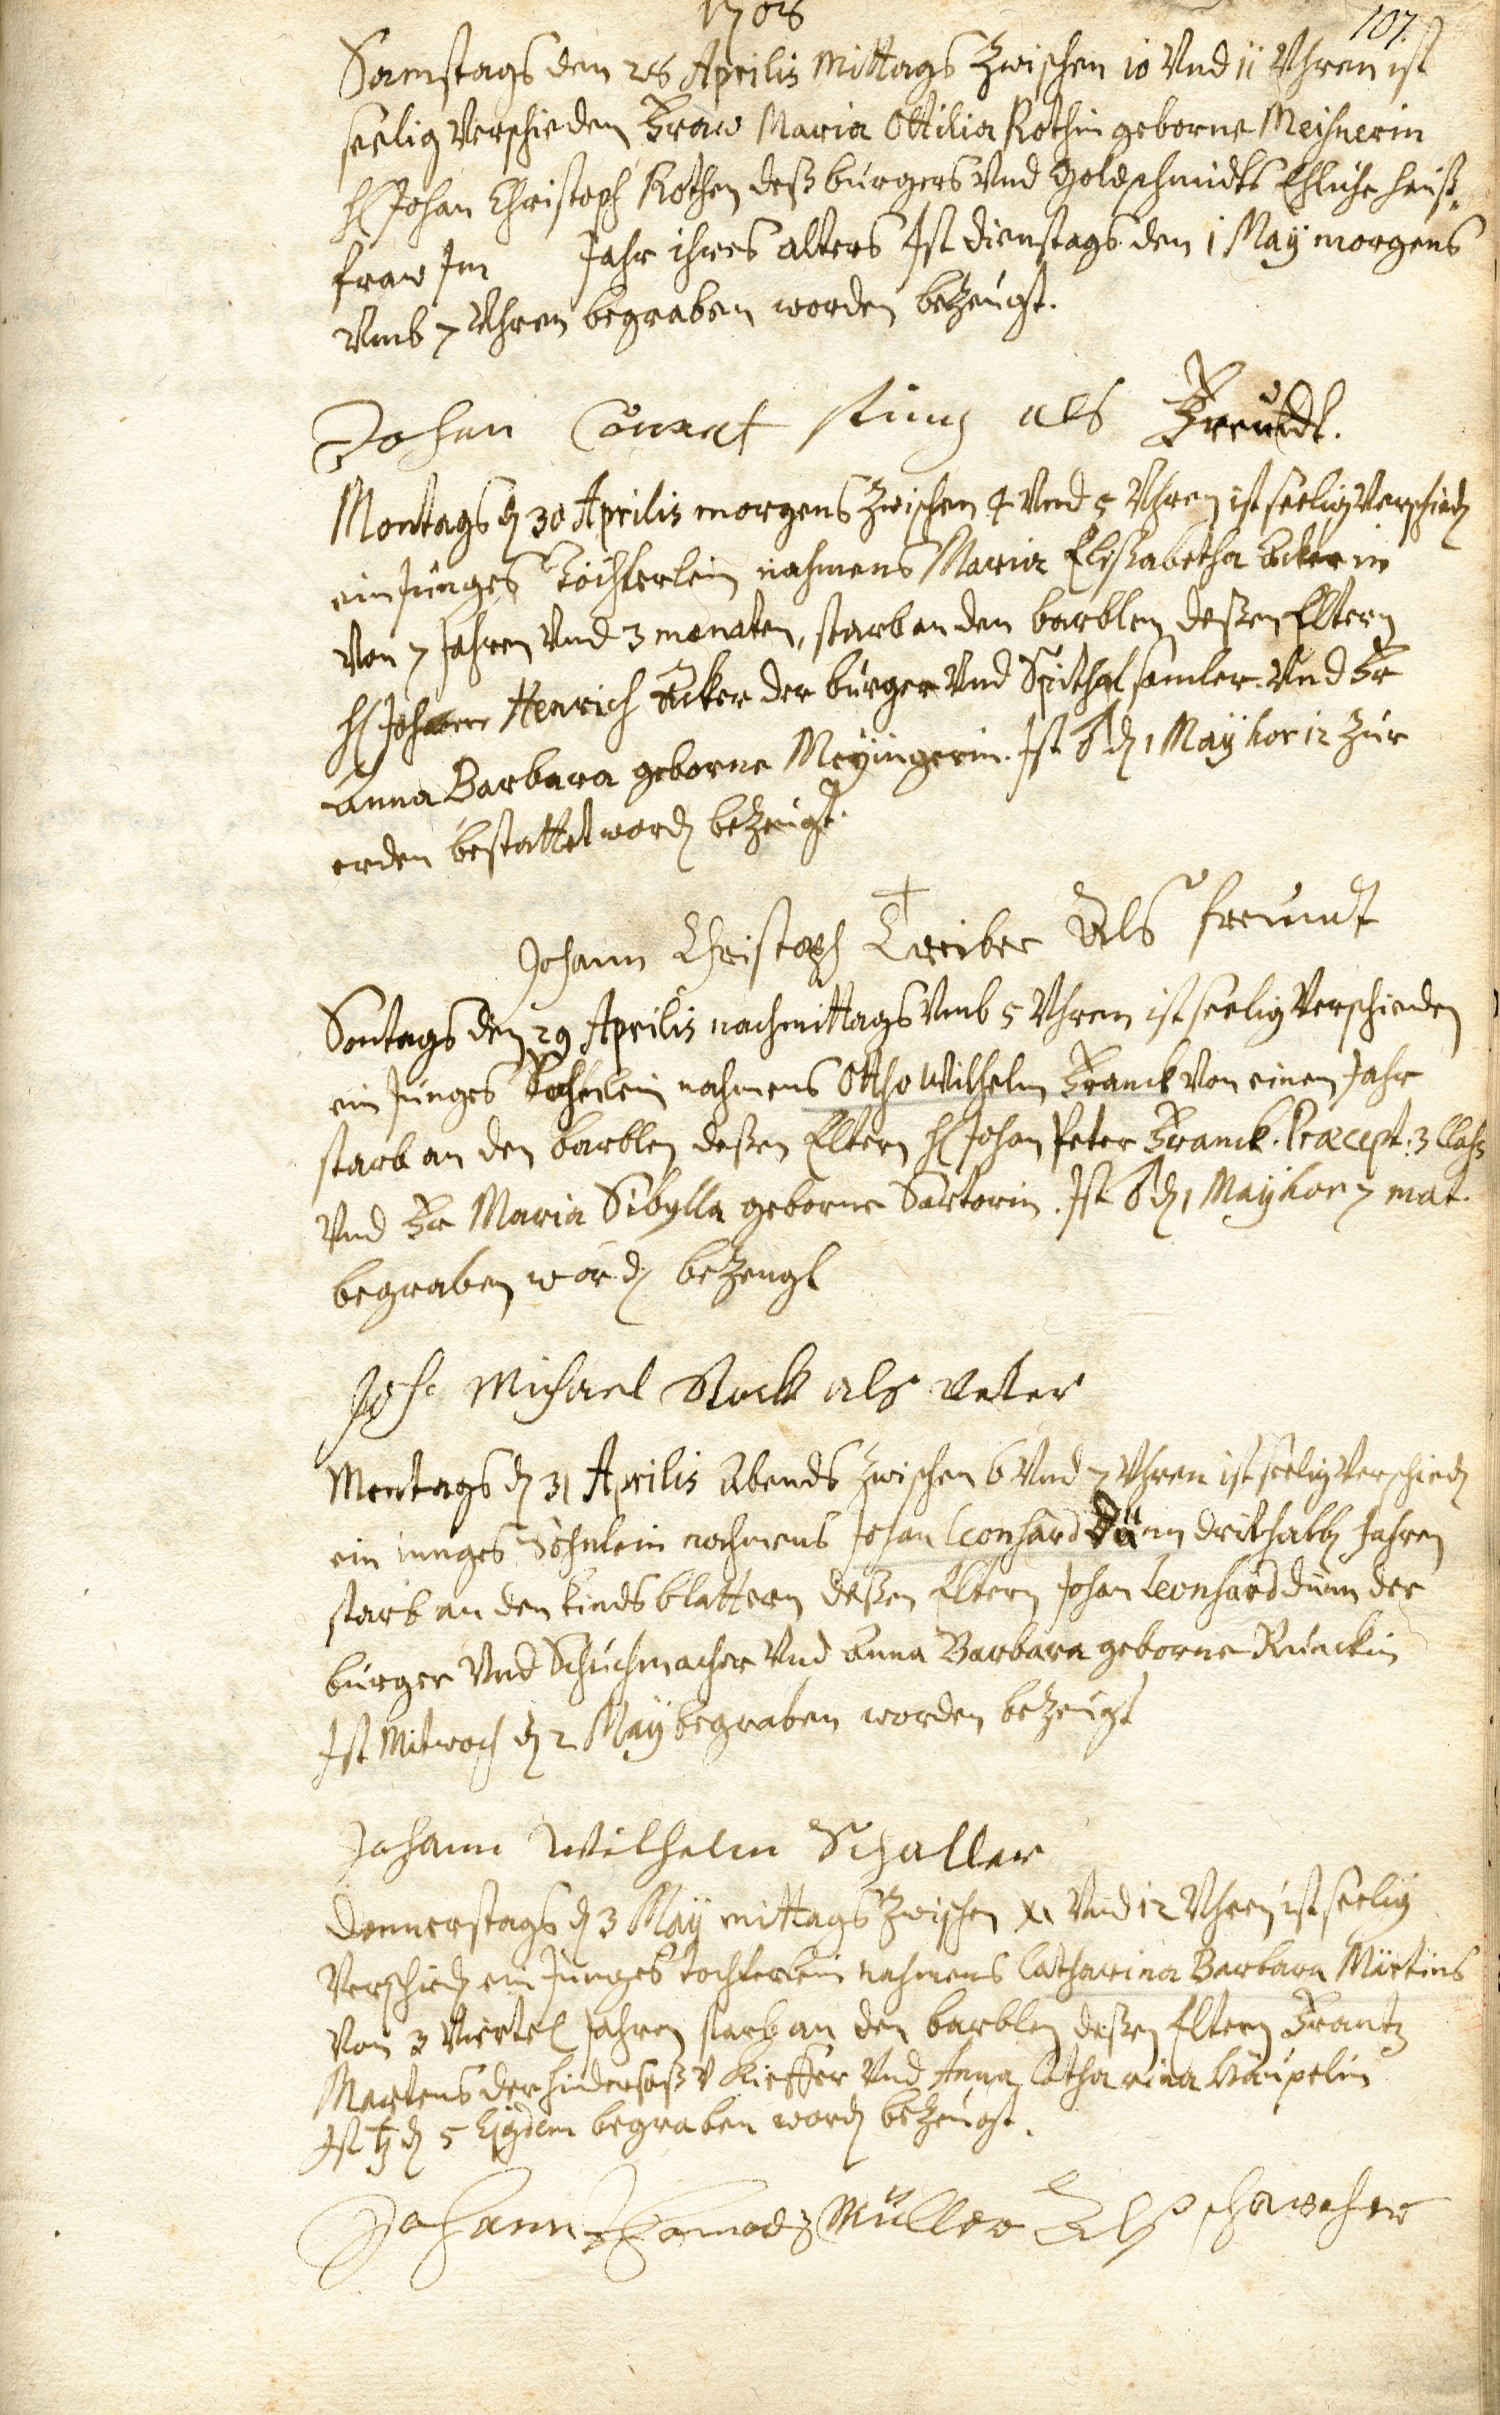 1708
107.
Samstags den 28 Aprilis Mittags zwischen 10 Vnd 11 Vhren ist
seelig Verschieden Fraw Maria Ottilia Rothin geborne Meisnerin
H Johan Christoph Rothen deß burgers Vnd Goldschmidts Ehliche hauß-
fraw Im Jahr ihres alters Ist dienstags den 1 Maÿ morgens
Vmb 7 Vhren begraben worden bezeugt.
Johan Conrat als Freundt.
Montags dẽ 30 Aprilis morgens zwischen 4 Vnd 5 Vhren ist seelig Verschiedẽ
ein Junges Töchterlein nahmens Maria Elisabetha Ackerin
Von 7 Jahren Vnd 3 monaten, starb an den barblen deßen Eltern
H Johann Henrich Acker der burger Vnd Spithal samler Vnd Fr
Anna Barbara geborne Meÿingerin. Ist ♂ dẽ 1 Maÿ hor 12 zur
erden bestattet wordẽ bezeugt.
Johann Christoph Treiber Als freundt
Sontags den 29 Aprilis nachmittags Vmb 5 Vhren ist seelig Verschieden
ein Junges nahmens Otto Wilhelm Franck Von einem Jahr
starb an den barblen deßen Eltern H Johan Peter Franck. Præcept. 3 Claß
Vnd Fr Maria Sibylla geborne Sartorin. Ist ♂ dẽ 1 Maÿ hor 7 mat.
begraben wordẽ bezeugt
Joh. Michael Stock als Vetter
Montags dẽ 31 Aprilis Abends zwischen 6 Vnd 7 Vhren ist seelig Verschiedẽ
ein iunges Söhnlein nahmens Johan Leonhard Dünn drithalb Jahren
starb an den kindsblattern deßen Eltern Johan Leonhard dünn der
burger Vnd Schuchmacher Vnd Anna Barbara geborne Ruckin
Ist Mitwoch dẽ 2 Maÿ begraben worden bezeugt
Johann Wilhelm Schaller
Donnerstags dẽ 3 Maÿ mittags zwischen XI Vnd 12 Vhren ist seelig
Verschiedẽ ein Junges tochterlein nahmens Catharina Barbara Martins
Von 3 Viertel Jahren starb an den barblen deßen Eltern Frantz
Martens der hindersaß V kieffer Vnd Anna Catharina Häupelin
Ist ♄ dẽ 5 Ejusdem begraben wordẽ bezeugt.
Johann Thomas Müller Alß schwecher